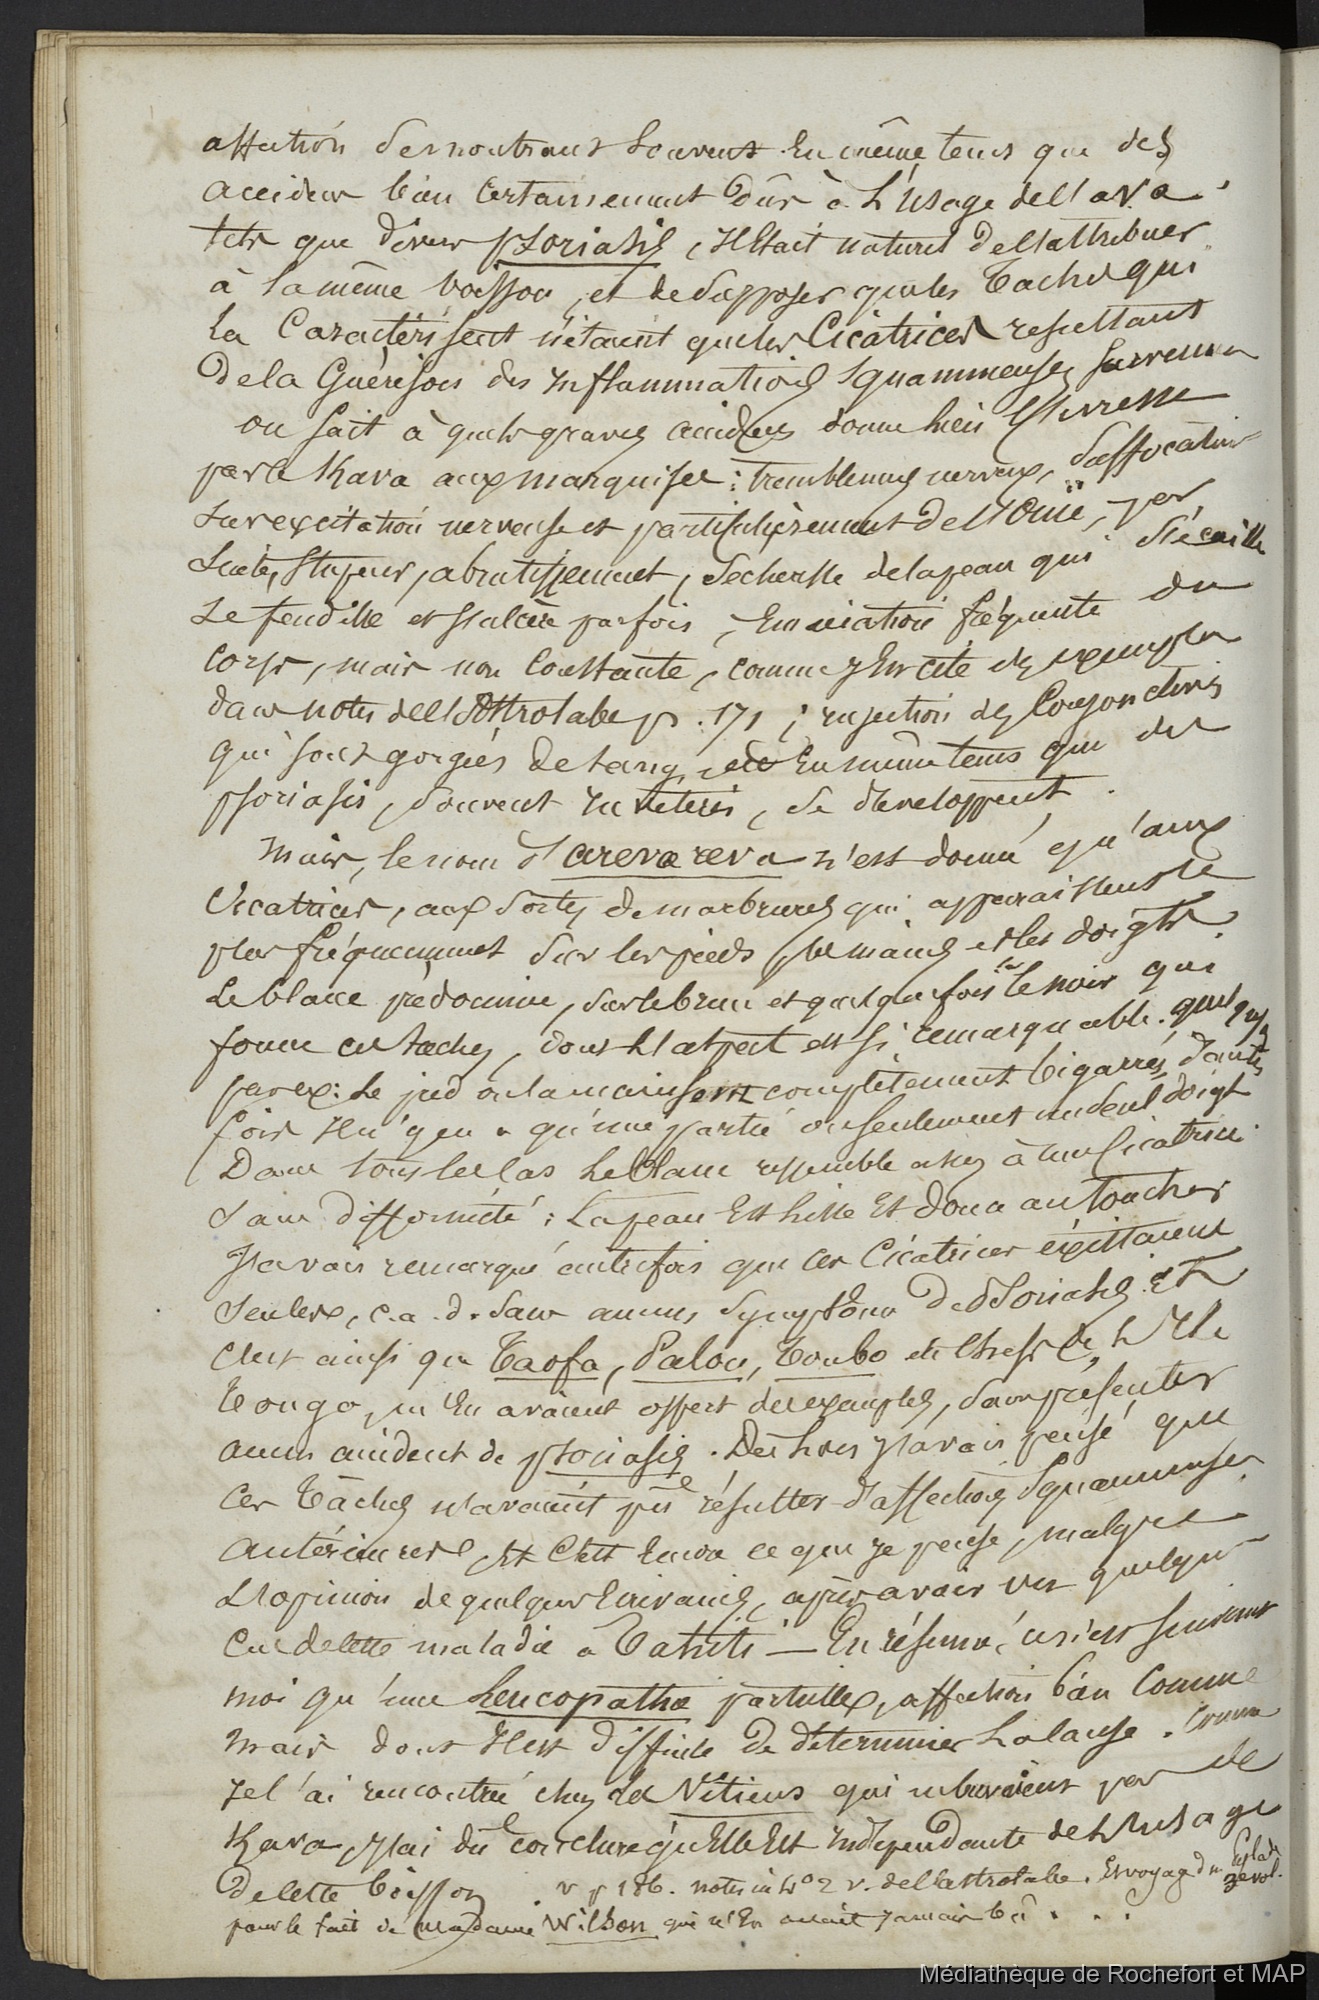 affection se montrant souvent en même tems que des
accidens bien certainement dûs à l'usage de l'ava
tels que divers psoriasis, il était naturel de l'attribuer
à la même boisson, et de supposer que les taches qui
la caractérisent n'étaient que les cicatrices resultant
de la guérison des inflammations squammeuses survenues
on sait à quels graves accidens donne lieu l'ivresse
par le Kava aux marquises : tremblemens nerveux, suffocation
surexcitation nerveuse et particulièrement de l'ouïe,
stupeur, abrutissement, secheresse de la peau qui s'écaille
se fendille et s'ulcère parfois, emaciation fréquente du
corps, mais non constante, comme j'en cite des exemples
dans notes de l'Astrolabe p. 171 ; injection des conjonctives
qui sont gorgées de sang, en même tems que des
psoriasis, souvent invétérés, se développent.
Mais, le nom d'arevareva n'est donné qu'aux
cicatrices, aux sortes de marbrures qui apparaissent le
plus fréquemment sur les pieds, les mains et les doigts.
Le blanc prédomine, sur le brun et quelquefois sur le noir qui
forme ces taches, dont l'aspect est si remarquable. quelques
par ex: le pied ou la main sont complètement bigarrés, d'autres
fois il n'y en a qu'une partie ou seulement un seul doigt
Dans tous les cas le blanc ressemble assez à une cicatrice
sans difformité : la peau est lisse et douce au toucher
J'avais remarqué autrefois que ces cicatrices existaient
seules, c. a. d. sans aucun symptôme de psoriasis. Et
c'est ainsi que Taofa, Palou, Toubo etc chefs de l'Ile
Tonga, m'en avaient offert des exemples, sans présenter
aucun accident de psoriasis. Dès lors j'avais pensé que
ces tâches n'avaient pu résulter d'affections squammeuses
antérieures et c'est encore ce que je pense, malgré
l'opinion de quelques écrivains, après avoir vu quelques
cas de cette maladie à Tahiti — En résumé, ce n'est suivant
moi qu'une leucopathie partielle, affection bien connue
mais dont il est difficile de déterminer la cause. Comme
je l'ai rencontrée chez les Vitiens qui ne buvaient pas de
Kava, j'ai dû conclure qu'elle est indépendante de l'usage
de cette boisson. v p 186. notes in 4° 2 v. de l'astrolabe. Et voyage
pour le fait de Madame Wilson qui n'en avait jamais bû . . .
Médiathèque de Rochefort et MAP